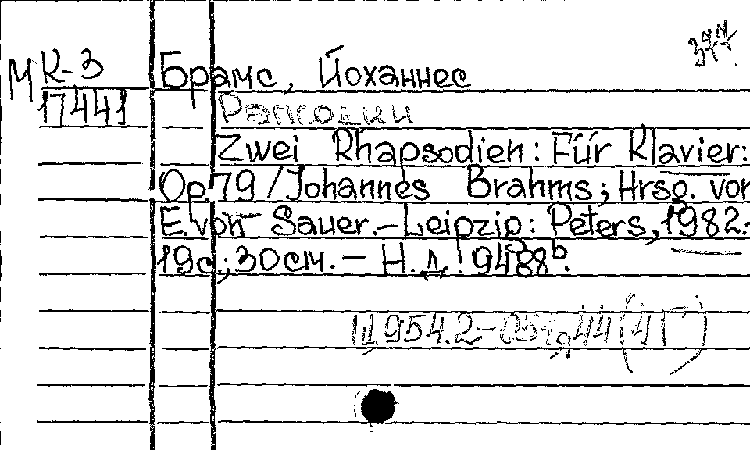 М К-3
17441
Брамс, Йоханнес
Рапсодии
Zwei Rhapsodien: Für Klavier:
Op.79/Johannes Brahms; Hrsg. von
E.von Sauer.-Leipzig: Peters, 1982.-
19с.; 30см.- Н.д.! 9488b.